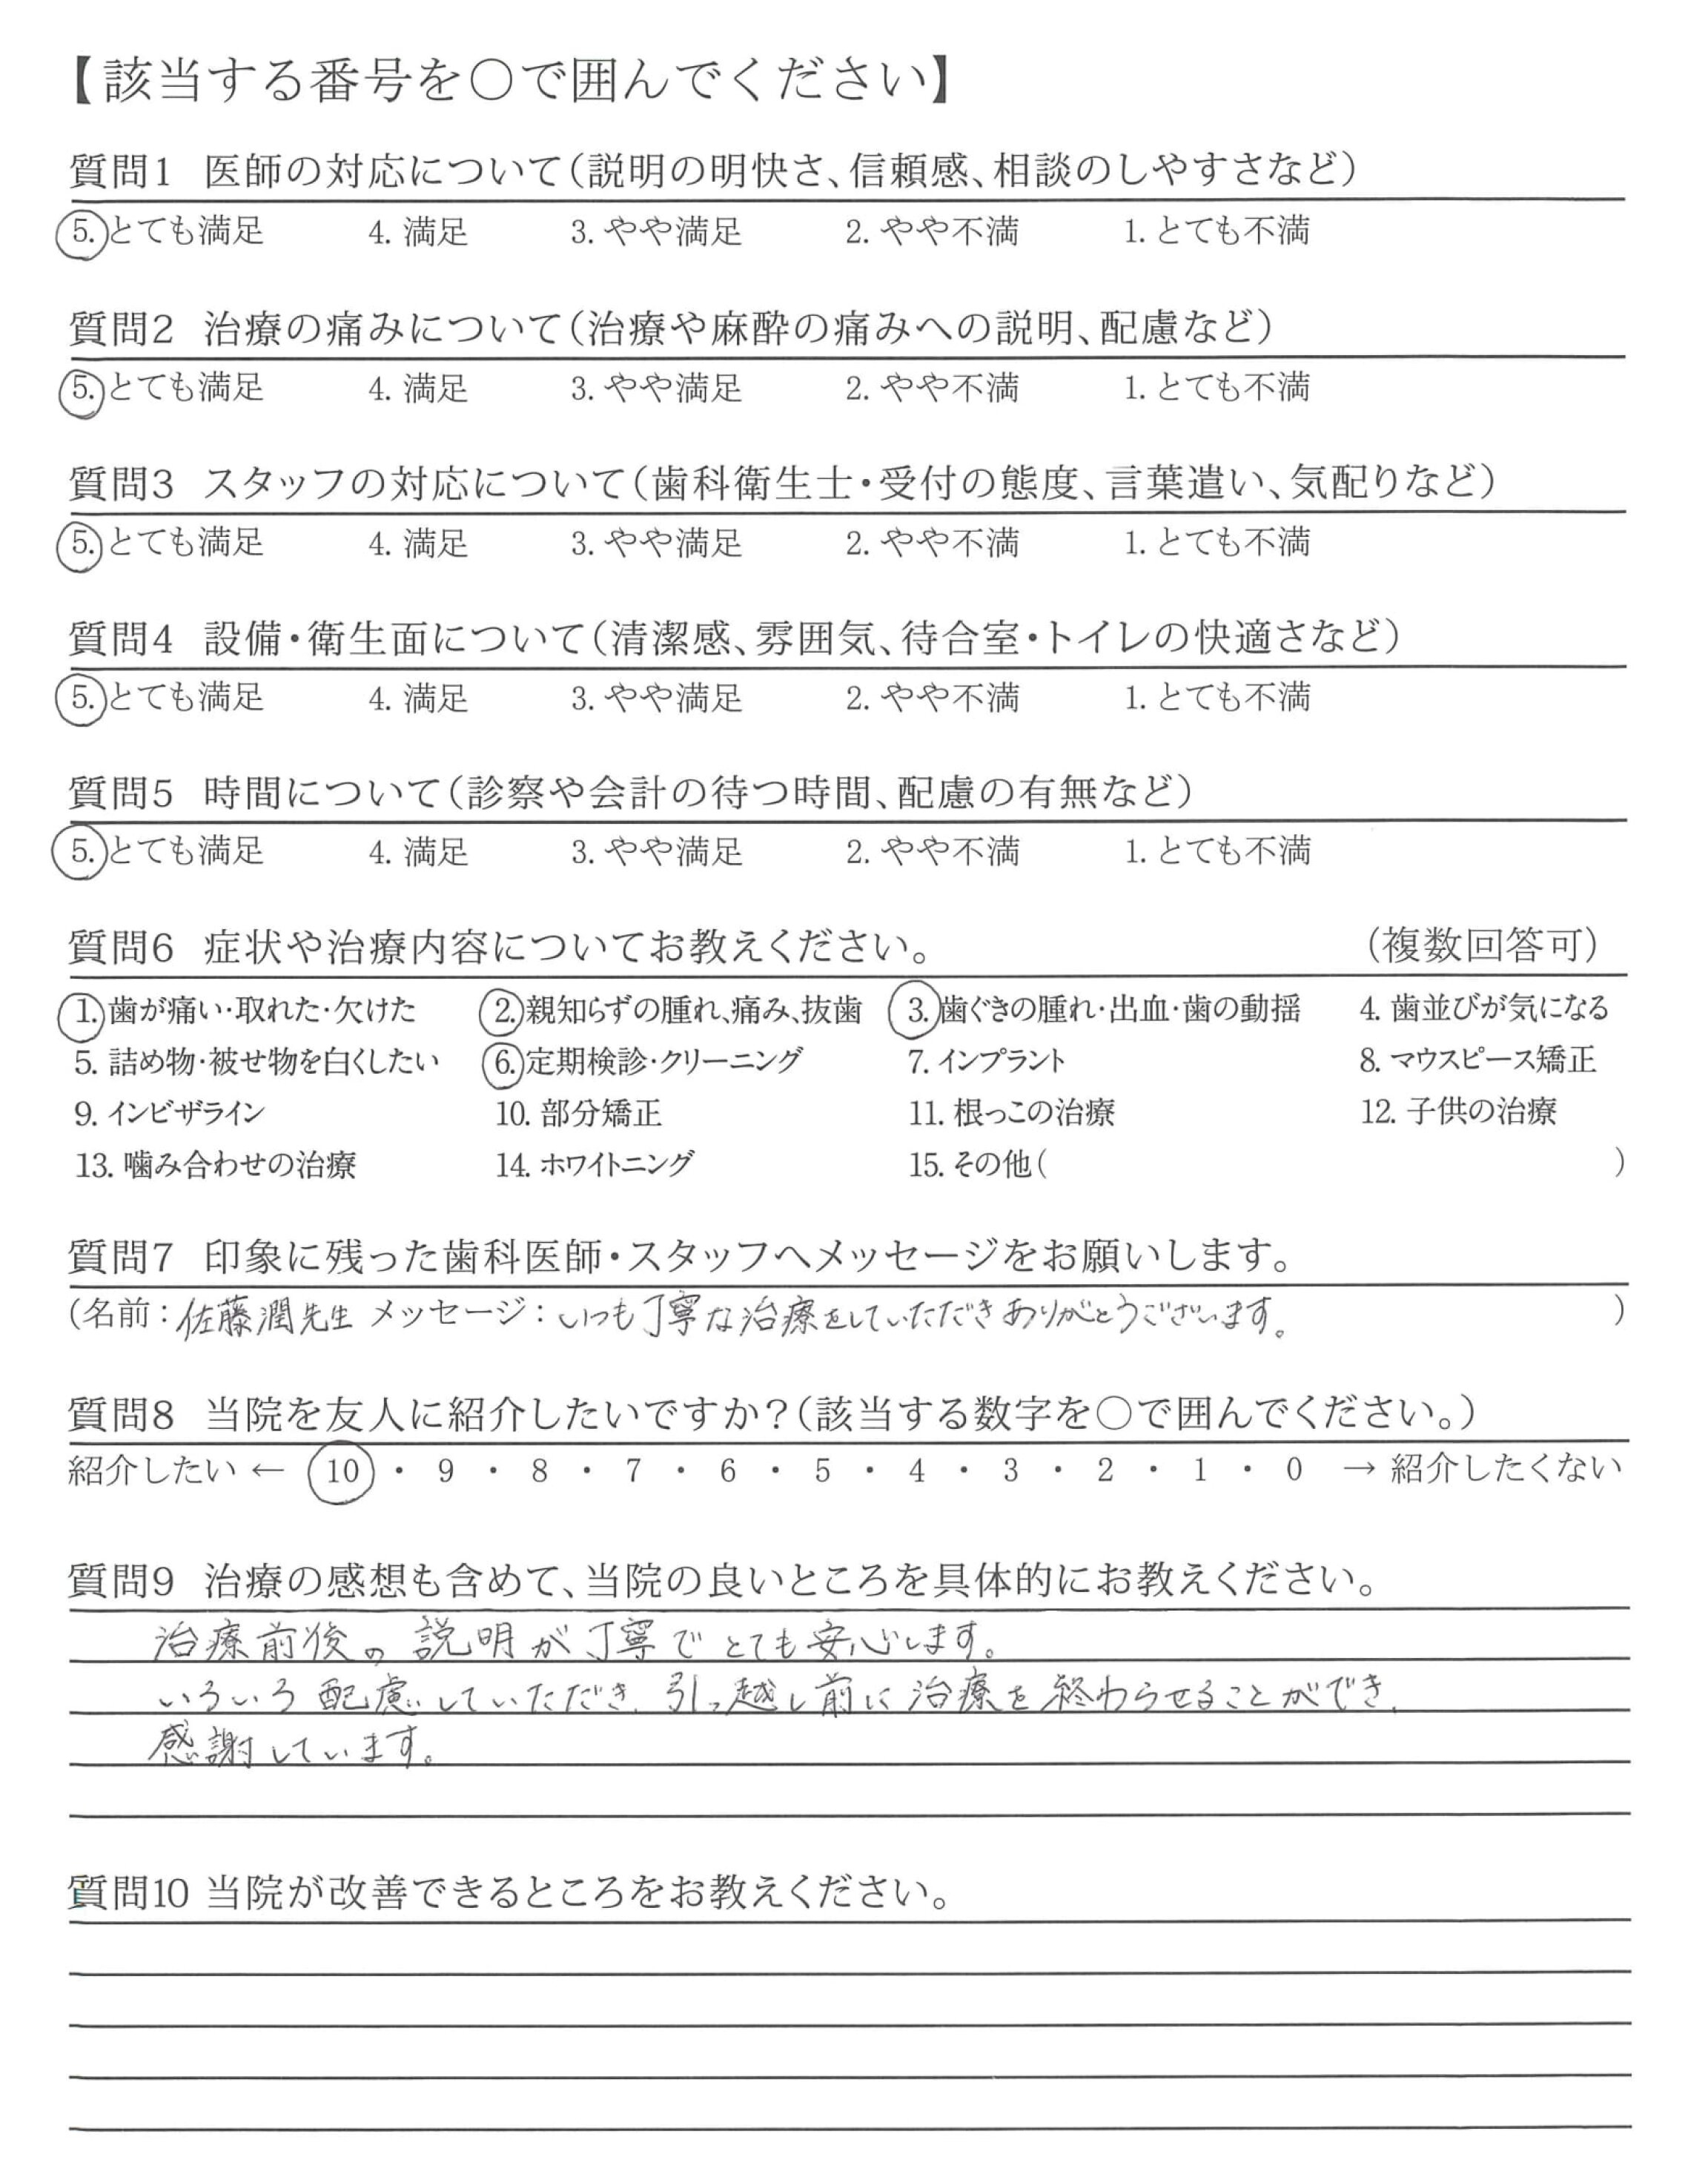 【該当する番号を○で囲んでください】
質問1 医師の対応について(説明の明快さ、信頼感、相談のしやすさなど)
5. とても満足 4. 満足 3. やや満足 2. やや不満 1. とても不満
質問2 治療の痛みについて(治療や麻酔の痛みへの説明、配慮など)
5. とても満足 4. 満足 3. やや満足 2. やや不満 1. とても不満
質問3 スタッフの対応について(歯科衛生士・受付の態度、言葉遣い、気配りなど)
5. とても満足 4. 満足 3. やや満足 2. やや不満 1. とても不満
質問4 設備・衛生面について(清潔感、雰囲気、待合室・トイレの快適さなど)
5. とても満足 4. 満足 3. やや満足 2. やや不満 1. とても不満
質問5 時間について(診察や会計の待つ時間、配慮の有無など)
5. とても満足 4. 満足 3. やや満足 2. やや不満 1. とても不満
質問6 症状や治療内容についてお教えください。 (複数回答可)
1. 歯が痛い・取れた・欠けた 2. 親知らずの腫れ、痛み、抜歯 3. 歯ぐきの腫れ・出血・歯の動揺 4. 歯並びが気になる
5. 詰め物・被せ物を白くしたい 6. 定期検診・クリーニング 7. インプラント 8. マウスピース矯正
9. インビザライン 10. 部分矯正 11. 根っこの治療 12. 子供の治療
13. 噛み合わせの治療 14. ホワイトニング 15. その他( )
質問7 印象に残った歯科医師・スタッフへメッセージをお願いします。
(名前：佐藤潤先生 メッセージ：いつも丁寧な治療をしていただきありがとうございます。 )
質問8 当院を友人に紹介したいですか？(該当する数字を○で囲んでください。)
紹介したい ← 10 ・ 9 ・ 8 ・ 7 ・ 6 ・ 5 ・ 4 ・ 3 ・ 2 ・ 1 ・ 0 → 紹介したくない
質問9 治療の感想も含めて、当院の良いところを具体的にお教えください。
治療前後の説明が丁寧でとても安心します。
いろいろ配慮していただき、引っ越し前に治療を終わらせることができ、
感謝しています。
質問10 当院が改善できるところをお教えください。